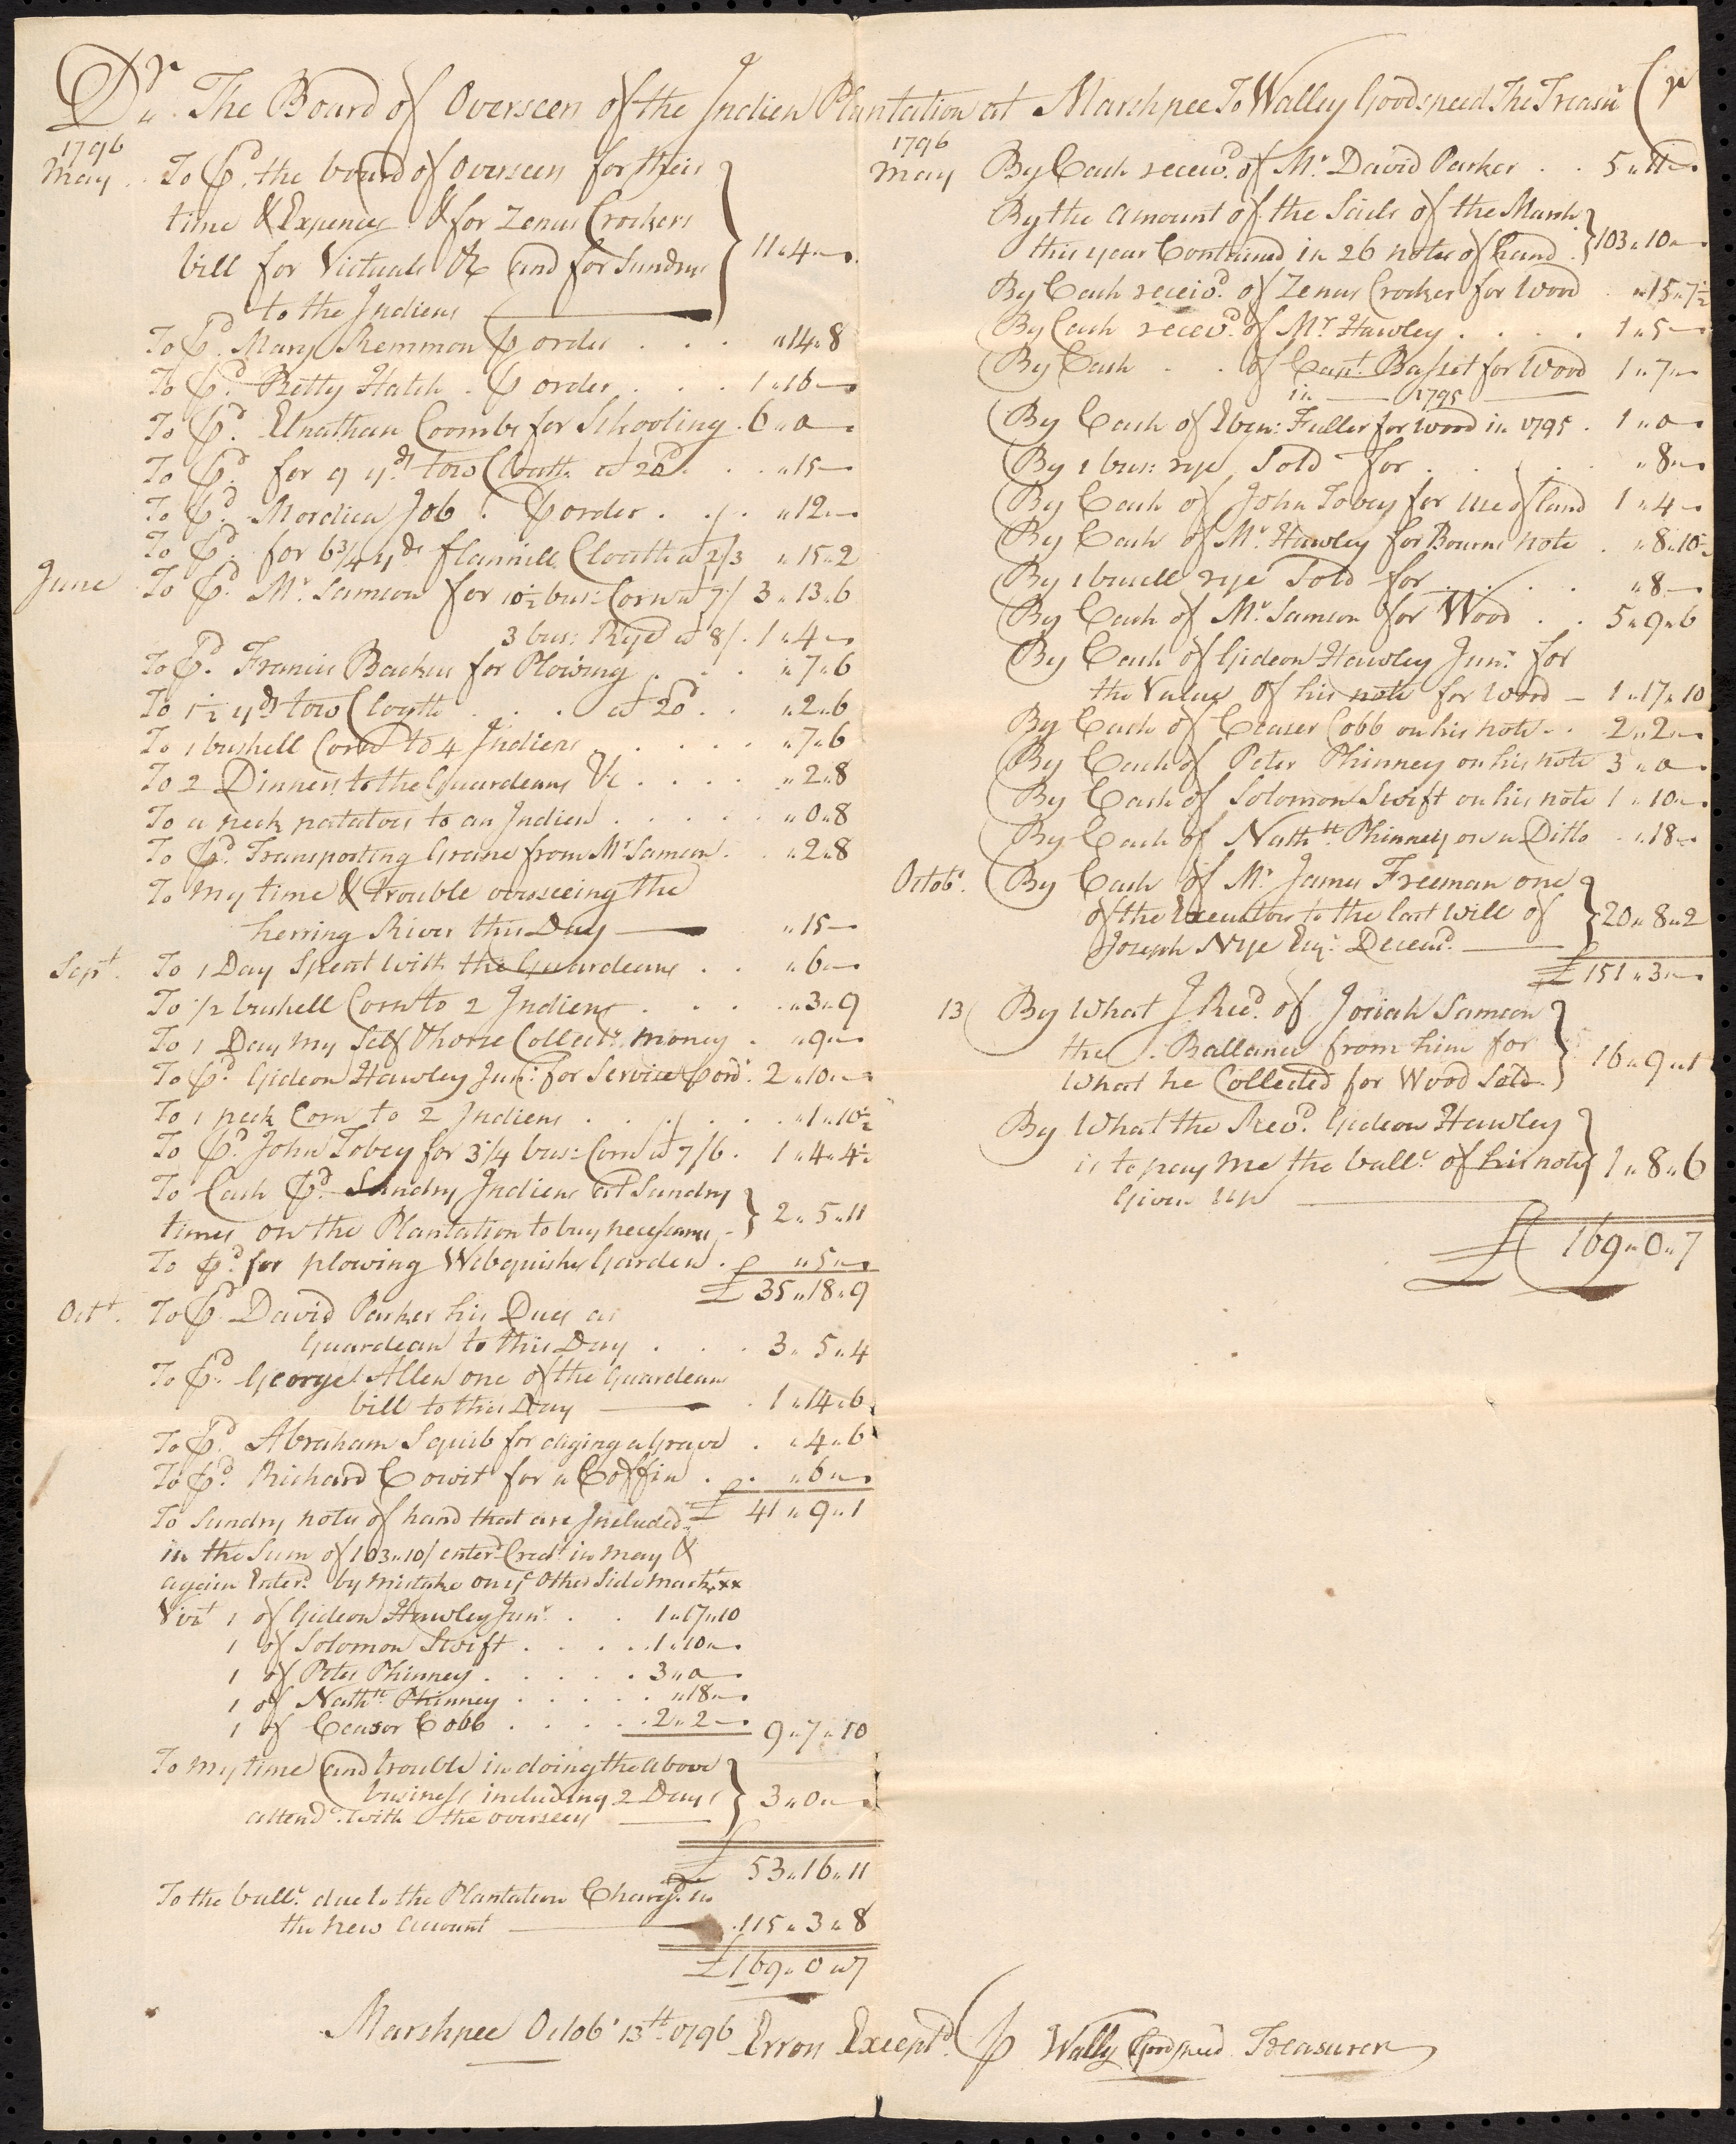 Dr. The Board of Overseers of the Indien Plantation at Marshpee To Walley Goodspeed The Treasr Cr
1796
May To Pd. the board of Overseers for their
time & Expences & for Zenas Crockers
bill for Victuals &c and for Sundrys
to the Indiens 11"4"—
To Pd. Mary Remmon ⅌ order . . . "14"8
To Pd. Betty Hatch . ⅌ order . . . 1"16—
To Pd. Elnathan Coombs for Schooling . 6"0—
To Pd. for 9 yds tow Cloath at 20d . . . "15—
To Pd. Mordica Job . ⅌ order . . . "12"—
To Pd. for 6 3/4 yds flannill Cloath at 2/3 "15"2
June To Pd. Mr. Samson for 10½ bus: Corn at 7/ 3"13"6
3 bus: Rye at 8/ . 1"4—
To Pd. Francis Backus for Plowing . . . "7"6
To 1½ yds tow Cloath . . . at 20d . . "2"6
To 1 bushell Corn to 4 Indiens . . . . "7"6
To 2 Dinners to the Guardeans &c . . . . "2"8
To a peck potatoes to an Indien . . . . . "0"8
To Pd. Transporting Graine from Mr. Samson . . "2"8
To my time & trouble overseeing the
herring River this Day "15—
Sept. To 1 Day Spent with the Guardeans . . "6"—
To 1/2 bushell Corn to 2 Indiens . . . . "3"9
To 1 Day my Self & horse Collectg. money . "9"—
To Pd. Gideon Hawley Junr. for Service ⅌ ordr. 2"10"—
To 1 peck Corn to 2 Indiens . . . . . . "1"10½
To Pd. John Tobey for 3 1/4 bus: Corn at 7/6 . 1"4"4½
To Cash Pd. Sundry Indiens at Sundry
times on the Plantation to buy necessaries 2"5"11
To Pd. for plowing Webquishs Garden . "5"—
£ 35"18"9
Oct. To Pd. David Parker his Dues as
Guardean to this Day . . . 3"5"4
To Pd. George Allen one of the Guardeans
bill to this Day . 1"14"6
To Pd. Abraham Squib for diging a Grave . "4"6
To Pd. Richard Cowit for a Coffin . . "6"—
£ 41"9"1
To Sundry notes of hand that are Included
in the Sum of 103"10/ enterd Credt. in may &
again Enterd. by mistake on ye Other Side markt xx
Vizt 1 of Gideon Hawley Junr. . . 1"17"10
1 of Solomon Swift . . . . 1"10"—
1 of Peter Phinney . . . . . 3"0—
1 of Nathll. Phinney . . . . . "18"—
1 of Ceasor Cobb . . . . 2"2—
9"7"10
To my time and trouble in doing the above
business including 2 Days
attendc. with the overseers 3"0"—
£ 53"16"11
To the ballc. due to the Plantation Chargd. in
the new account 115"3"8
£169"0"7
1796
May By Cash receivd. of Mr. David Parker . . 5"11—
By the amount of the Sails of the Marsh
this year Contained in 26 notes of hand 103"10"—
By Cash receivd. of Zenas Crocker for Wood "15"7½
By Cash receivd. of Mr. Hawley . . . . 1"5—
By Cash . . of Capt. Basset for Wood 1"7"—
in 1795
By Cash of Eben: Fuller for wood in 1795 . 1"0—
By 1 bus: rye Sold for . . . . "8"—
By Cash of John Tobey for use of land 1"4—
By Cash of Mr. Hawley for Bourns note . "8"10½
By 1 busell rye Sold for . . . . "8—
By Cash of Mr. Samson for Wood . . 5"9"6
By Cash of Gideon Hawley Junr. for
the Value of his note for Wood — 1"17"10
By Cash of Ceaser Cobb on his note . . 2"2"—
By Cash of Peter Phinney on his note 3"0—
By Cash of Solomon Swift on his note 1"10"—
By Cash of Nathll. Phinney on a Ditto . "18—
Octobr. By Cash of Mr. James Freeman one
of the Executors to the last will of
Joseph Nye Esqr. Deceasd. 20"8"2
£ 151"3"—
13 By What I Recd. of Josiah Samson
the Ballance from him for
What he Collected for Wood Sold 16"9"1
By What the Revd. Gideon Hawley
is to pay me the ballc. of his note
Given up 1"8"6
£ 169"0"7
Marshpee Octobr 13th 1796 Errors Exceptd. ⅌ Wally Goodspeed Treasurer